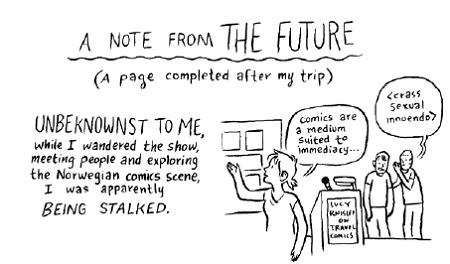 A NOTE FROM THE FUTURE
(A page completed after my trip)
UNBEKNOWNST TO ME,
while I wandered the show,
meeting people and exploring
the Norwegian comics scene,
I was apparently
BEING STALKED.
comics are
a medium
suited to
immediacy...
<crass
sexual
innuendo>
LUCY
KNISLEY
ON
TRAVEL
COMICS